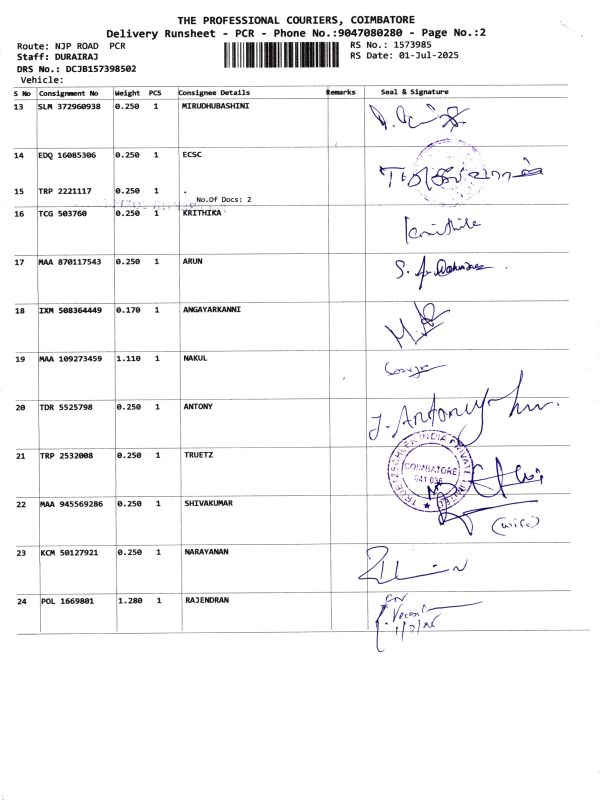 THE PROFESSIONAL COURIERS, COIMBATORE
Delivery Runsheet - PCR - Phone No.:9047080280 - Page No.:2
Route: NJP ROAD PCR
RS No.: 1573985
Staff: DURAIRAJ
RS Date: 01-Jul-2025
DRS No.: DCJB157398502
Vehicle:
S No Consignment No Weight PCS Consignee Details Remarks Seal & Signature
13 SLM 372960938 0.250 1 MIRUDHUBASHINI
14 EDQ 16085306 0.250 1 ECSC
15 TRP 2221117 0.250 1 .
No.Of Docs: 2
16 TCG 503760 0.250 1 KRITHIKA
Krithika
17 MAA 870117543 0.250 1 ARUN
18 IXM 508364449 0.170 1 ANGAYARKANNI
19 MAA 109273459 1.110 1 NAKUL
20 TDR 5525798 0.250 1 ANTONY
J. Antony
21 TRP 2532008 0.250 1 TRUETZ
COIMBATORE
641 036
22 MAA 945569286 0.250 1 SHIVAKUMAR
(wife)
23 KCM 50127921 0.250 1 NARAYANAN
24 POL 1669801 1.280 1 RAJENDRAN